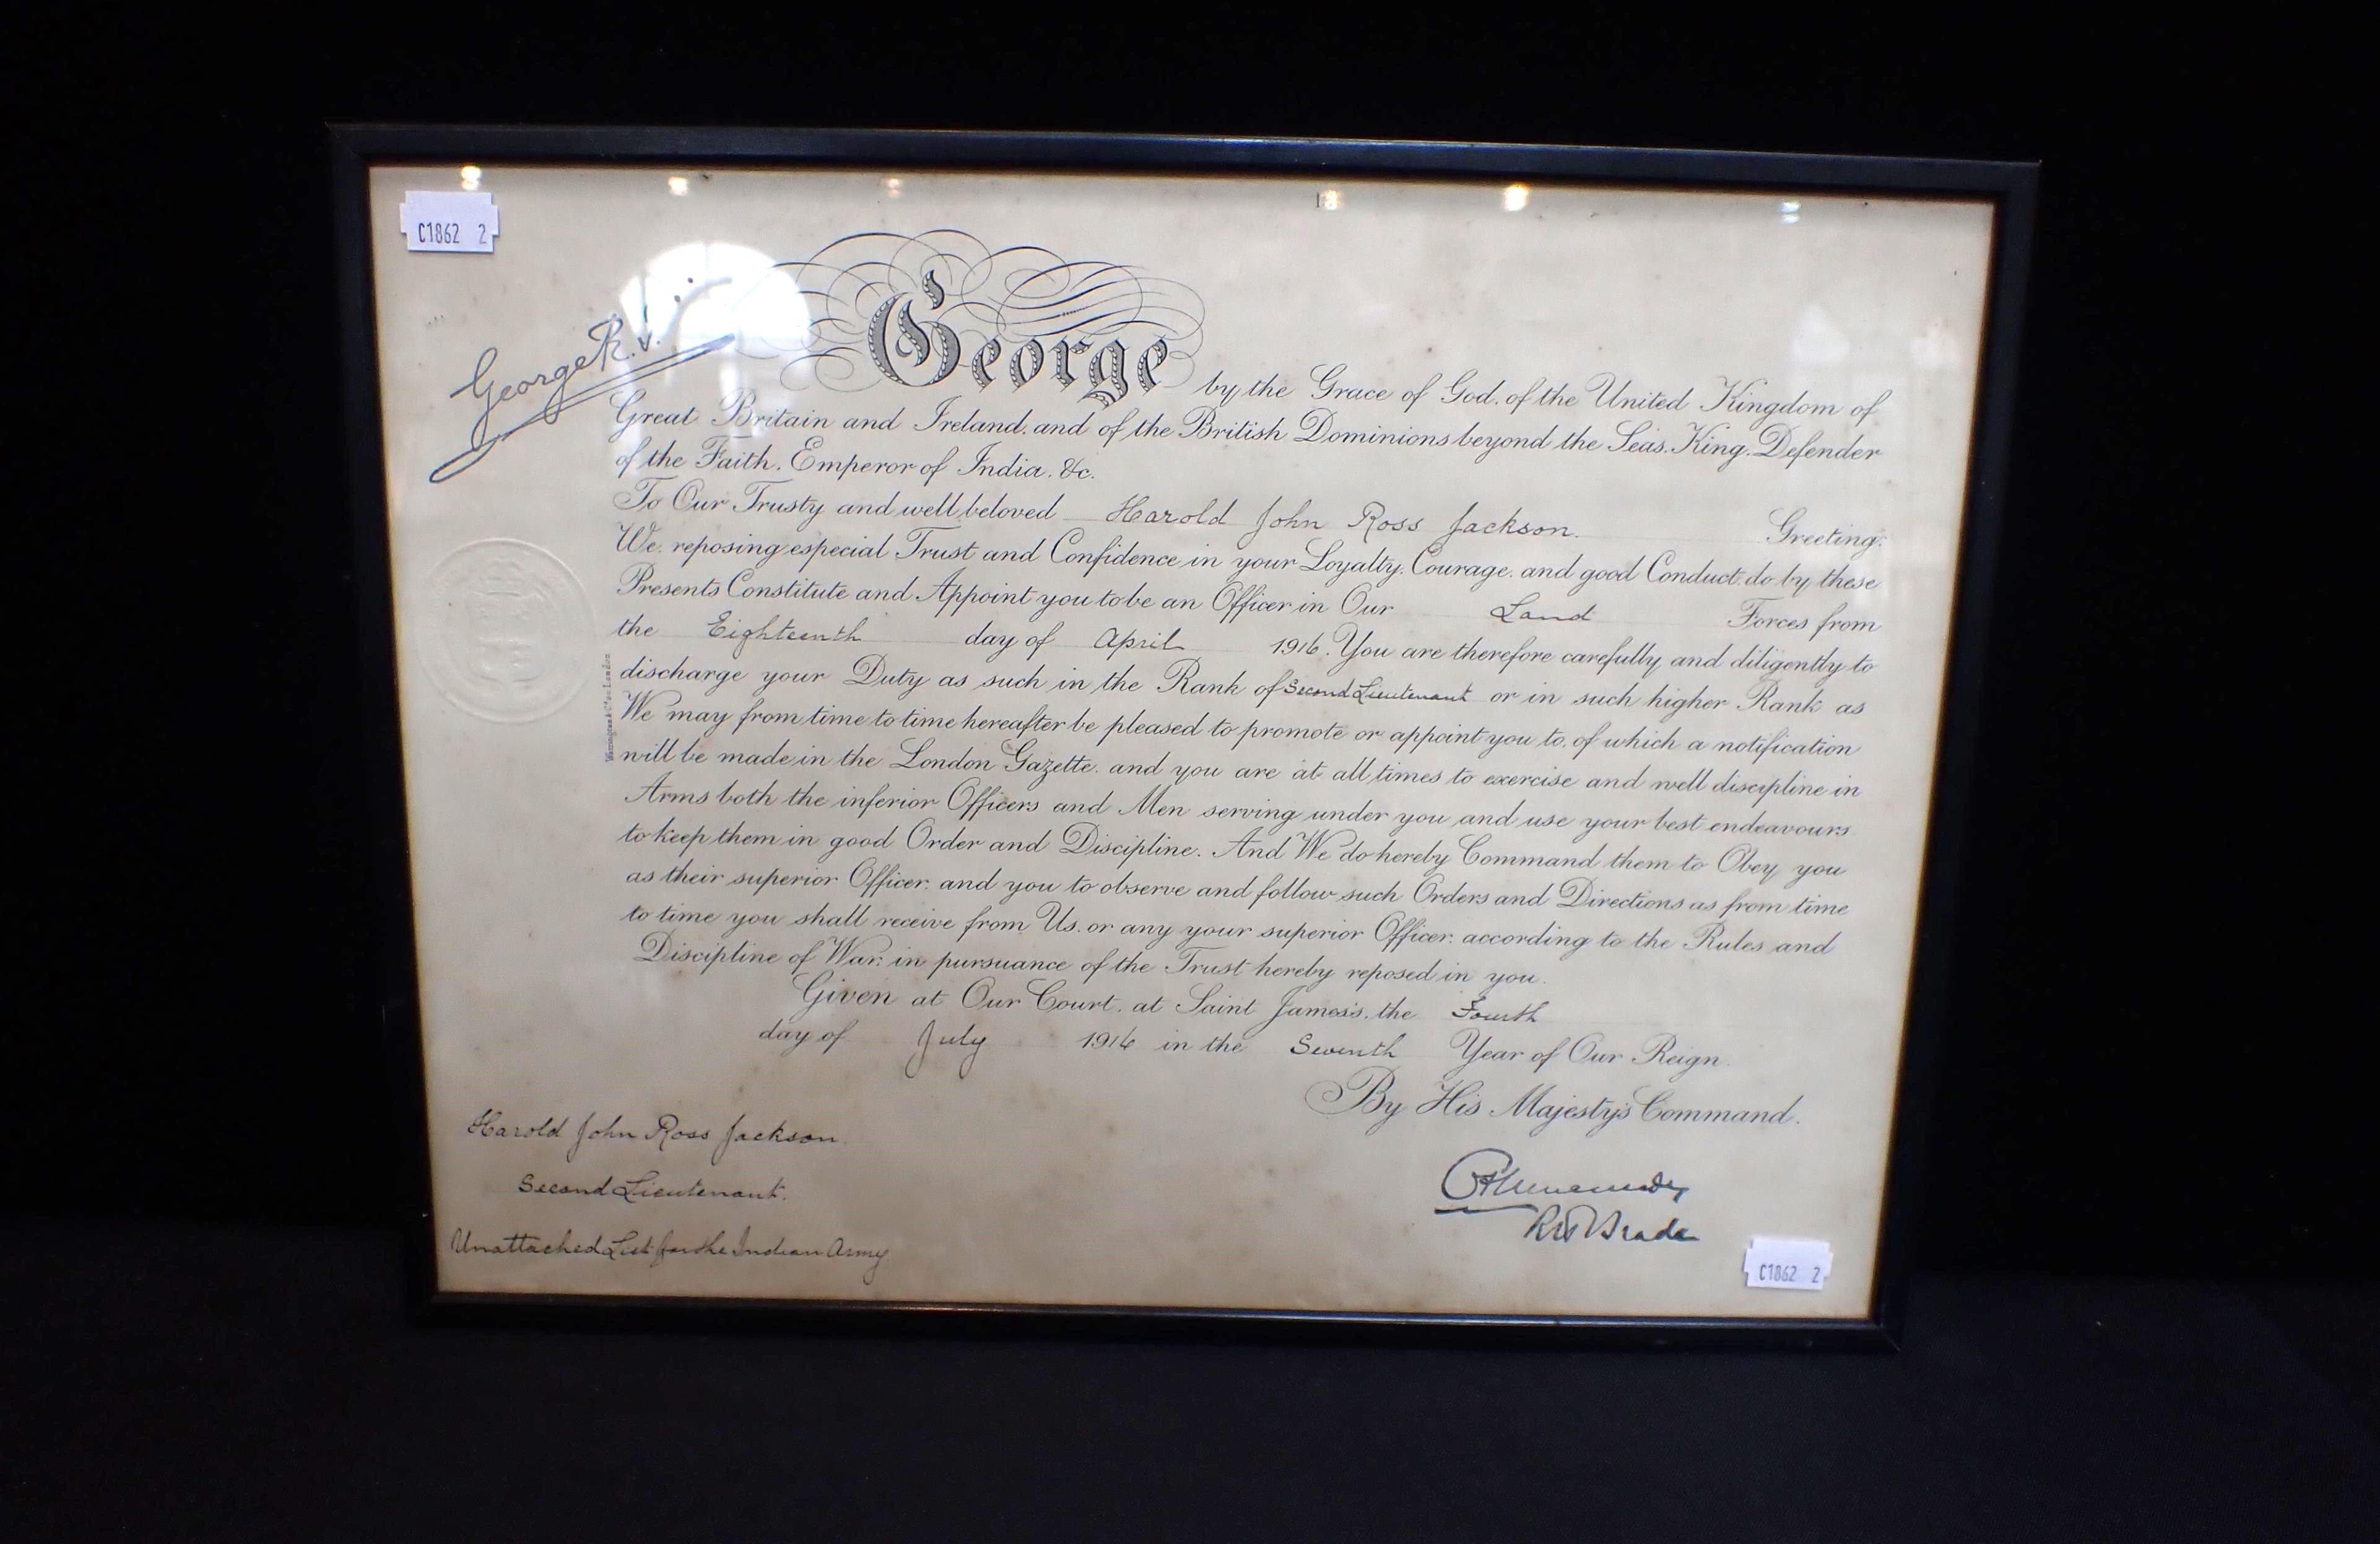 C1862 2
George R.I.
George by the Grace of God, of the United Kingdom of
Great Britain and Ireland, and of the British Dominions beyond the Seas, King, Defender
of the Faith, Emperor of India, &c.
To Our Trusty and well beloved Harold John Ross Jackson. Greeting:
We, reposing especial Trust and Confidence in your Loyalty, Courage, and good Conduct, do by these
Presents Constitute and Appoint you to be an Officer in Our Land Forces from
the Eighteenth day of April 1916. You are therefore carefully and diligently to
discharge your Duty as such in the Rank of Second Lieutenant or in such higher Rank as
We may from time to time hereafter be pleased to promote or appoint you to, of which a notification
will be made in the London Gazette, and you are at all times to exercise and well discipline in
Arms both the inferior Officers and Men serving under you and use your best endeavours
to keep them in good Order and Discipline. And We do hereby Command them to Obey you
as their superior Officer, and you to observe and follow such Orders and Directions as from time
to time you shall receive from Us, or any your superior Officer, according to the Rules and
Discipline of War, in pursuance of the Trust hereby reposed in you.
Given at Our Court, at Saint James's, the Fourth
day of July 1916 in the Seventh Year of Our Reign.
By His Majesty's Command.
Harold John Ross Jackson.
Second Lieutenant.
Unattached List for the Indian Army
R H Brade
C1862 2